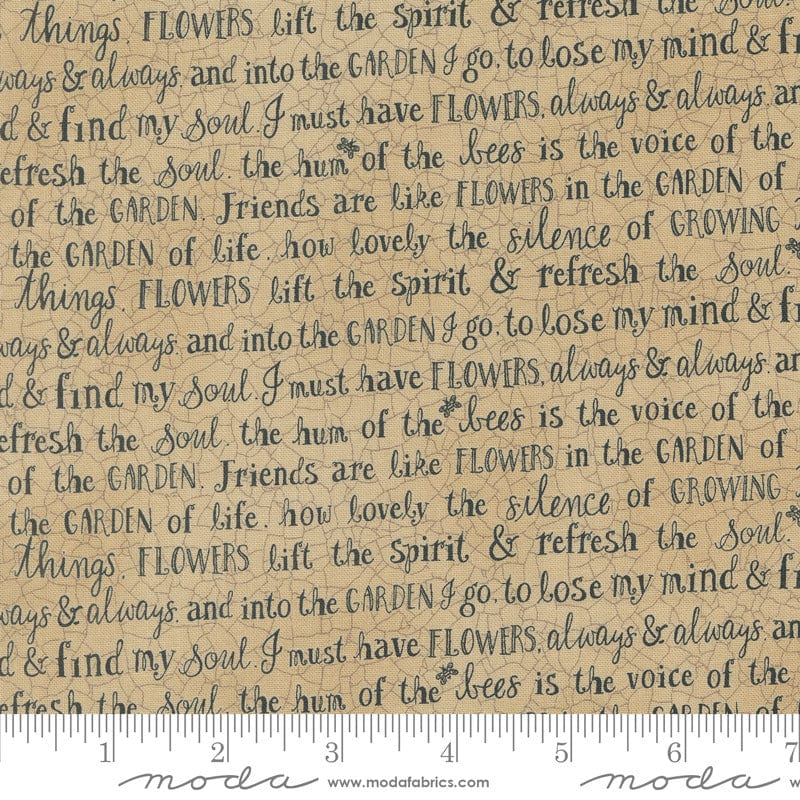 things. FLOWERS lift the spirit & refresh the Soul.
ways & always. and into the GARDEN I go, to lose my mind & fi
d & find my Soul. I must have FLOWERS, always & always. an
efresh the Soul. the hum of the bees is the voice of the
of the GARDEN. Friends are like FLOWERS in the GARDEN of
the GARDEN of life. how lovely the silence of GROWING
things. FLOWERS lift the spirit & refresh the Soul.
ways & always. and into the GARDEN I go, to lose my mind & fi
d & find my Soul. I must have FLOWERS, always & always. an
efresh the Soul. the hum of the bees is the voice of the
of the GARDEN. Friends are like FLOWERS in the GARDEN of
the GARDEN of life. how lovely the silence of GROWING
things. FLOWERS lift the spirit & refresh the Soul.
ways & always. and into the GARDEN I go, to lose my mind & fi
d & find my Soul. I must have FLOWERS, always & always. an
efresh the Soul. the hum of the bees is the voice of the
GARDEN of
1 2 3 4 5 6 7
moda www.modafabrics.com moda w